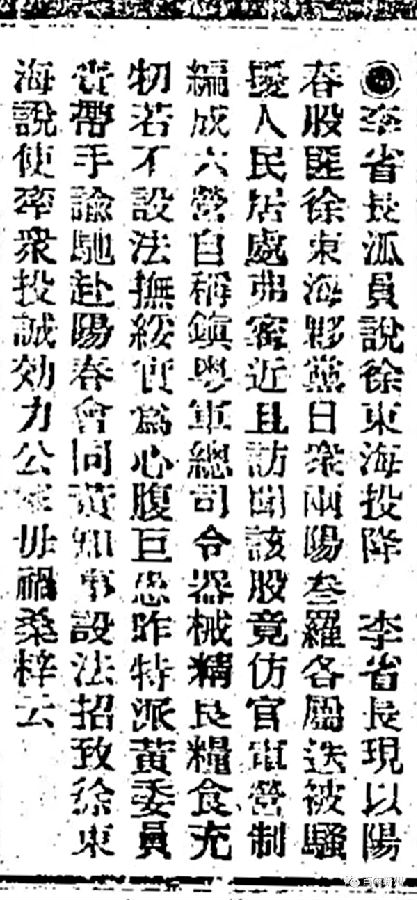 ◉李省長派員說徐東海投降　李省長現以陽
春股匪徐東海夥黨日衆兩陽叁羅各屬迭被騷
擾人民居處弗寗近且訪聞該股竟仿官軍營制
編成六營自稱鎮粤軍總司令器械精良糧食充
牣若不設法撫綏實爲心腹巨患昨特派黃委員
帶手諭馳赴陽春會同黃知事設法招致徐東
海說使率衆投誠効力公家毋禍桑梓云